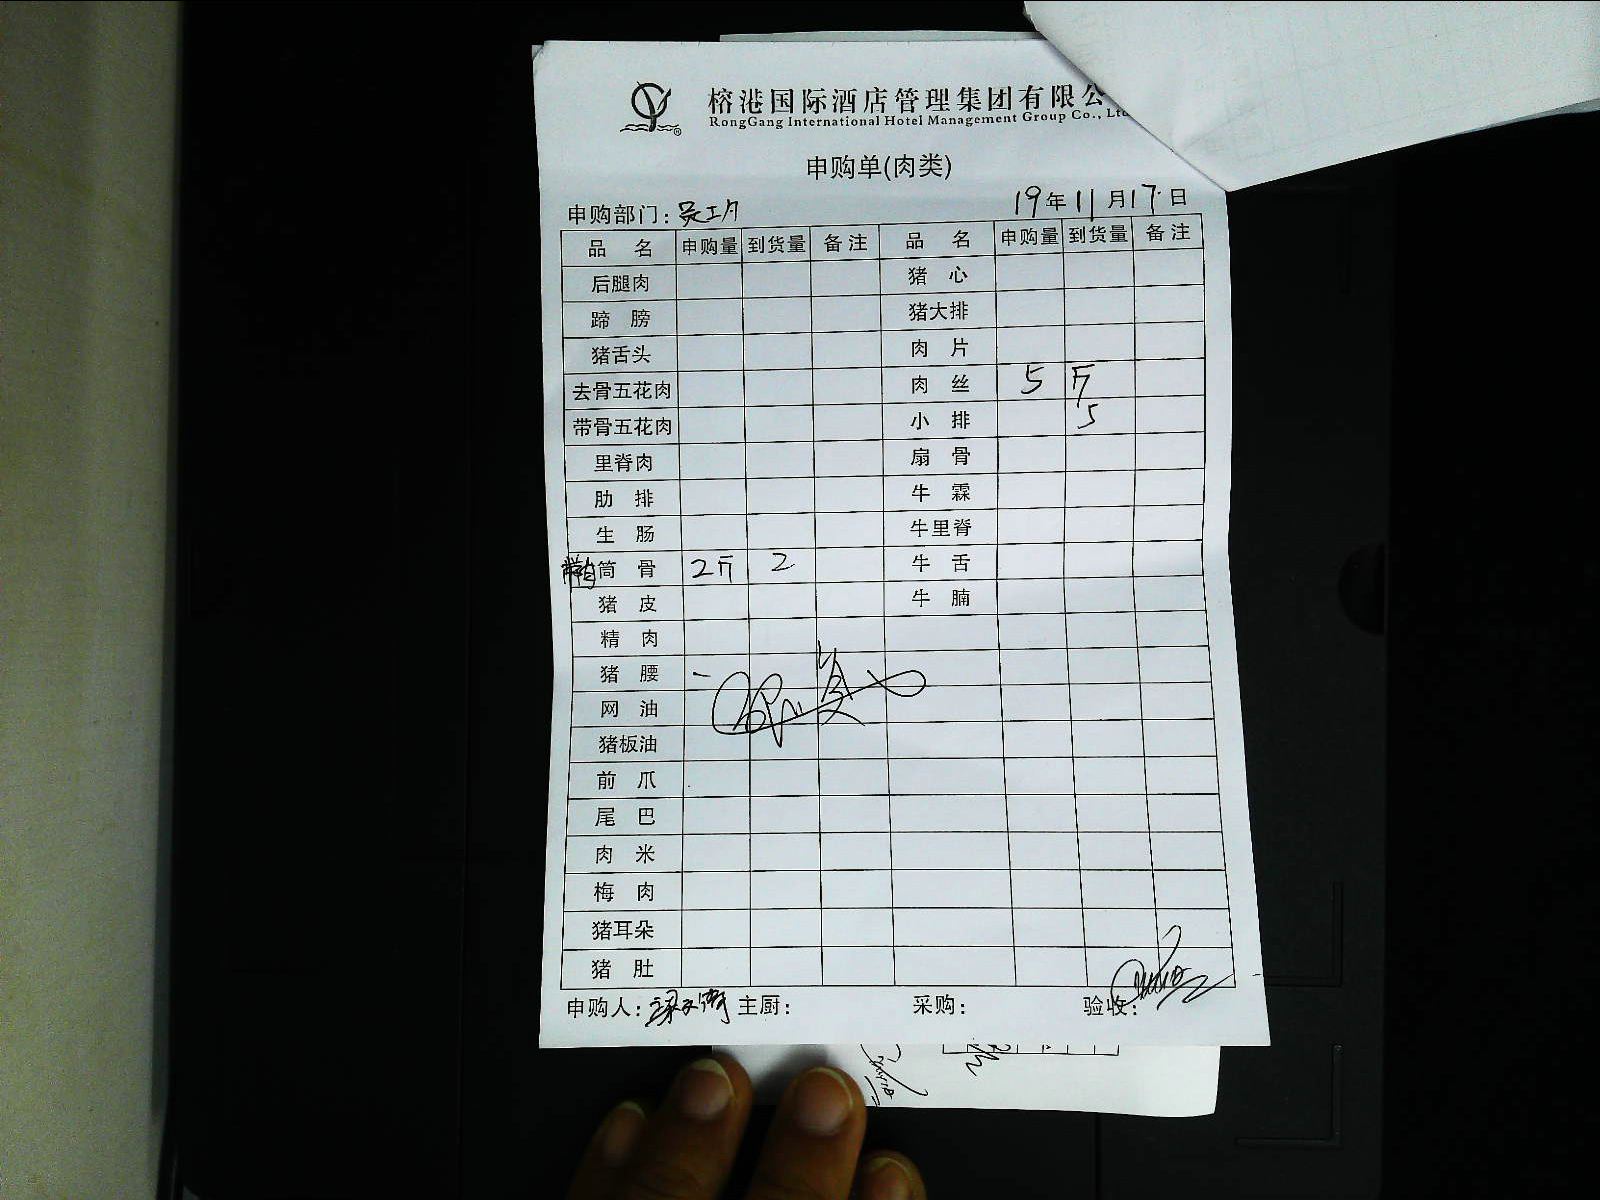 榕港国际酒店管理集团有限公
RongGang International Hotel Management Group Co., Ltd
申购单(肉类)
申购部门：员工 19年11月17日
品 名 申购量 到货量 备注 品 名 申购量 到货量 备注
后腿肉 猪 心
蹄 膀 猪大排
猪舌头 肉 片
去骨五花肉 肉 丝 5 斤
带骨五花肉 小 排 5
里脊肉 扇 骨
肋 排 牛 霖
生 肠 牛里脊
筒 骨 2斤 2 牛 舌
猪 皮 牛 腩
精 肉
猪 腰
网 油
猪板油
前 爪
尾 巴
肉 米
梅 肉
猪耳朵
猪 肚
申购人： 主厨： 采购： 验收：